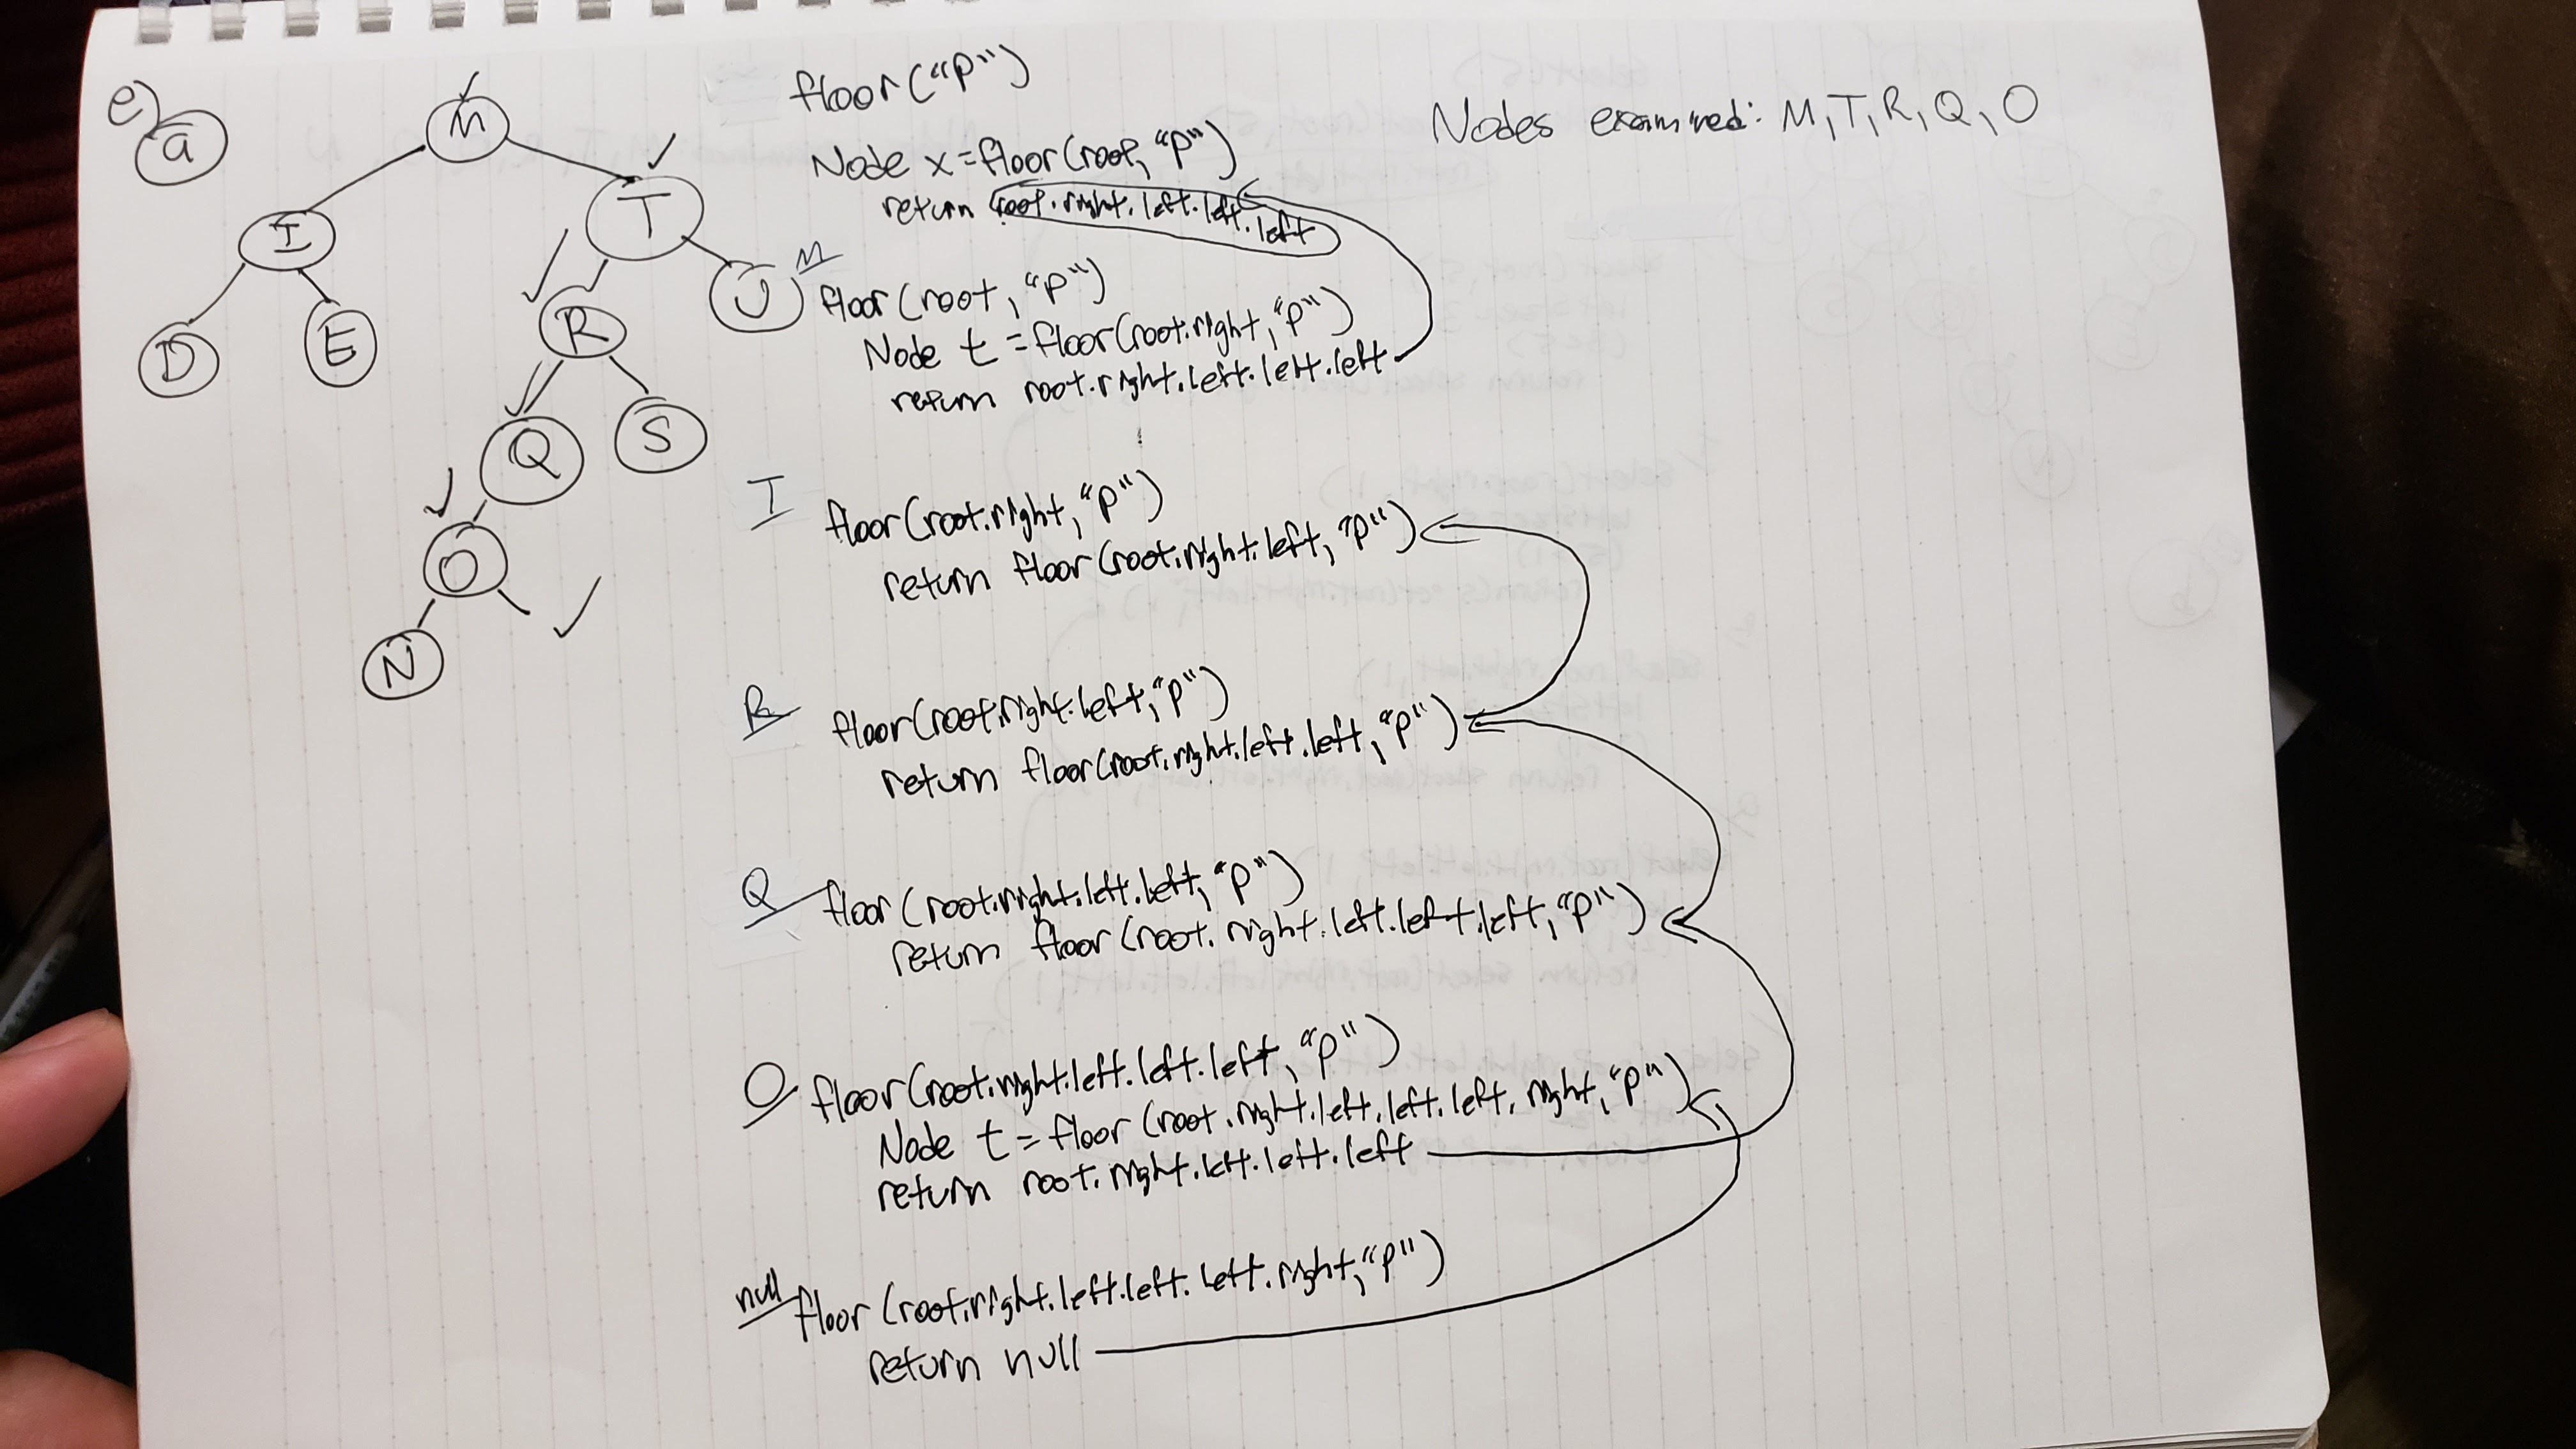 e)
a
M
I
T
D
E
R
U
Q
S
O
N
floor("p")
Node x=floor(root, "p")
return root.right.left.left.left
M
floor(root, "p")
Node t=floor(root.right, "p")
return root.right.left.left.left
T
floor(root.right, "p")
return floor(root.right.left, "p")
R
floor(root.right.left, "p")
return floor(root.right.left.left, "p")
Q floor(root.right.left.left, "p")
return floor(root.right.left.left.left, "p")
O floor(root.right.left.left.left, "p")
Node t=floor(root.right.left.left.left.right, "p")
return root.right.left.left.left
null floor(root.right.left.left.left.right, "p")
return null
Nodes examined: M, T, R, Q, O